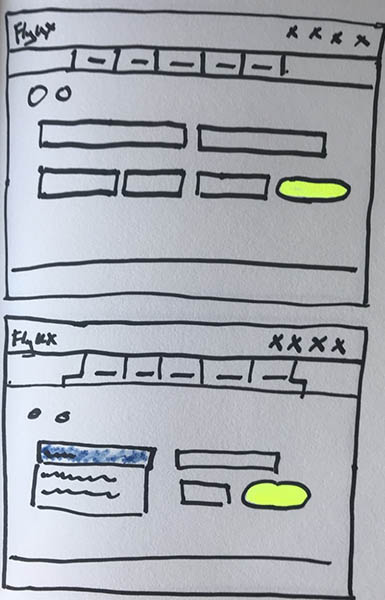 FlyUX x x x x
FlyUX x x x x